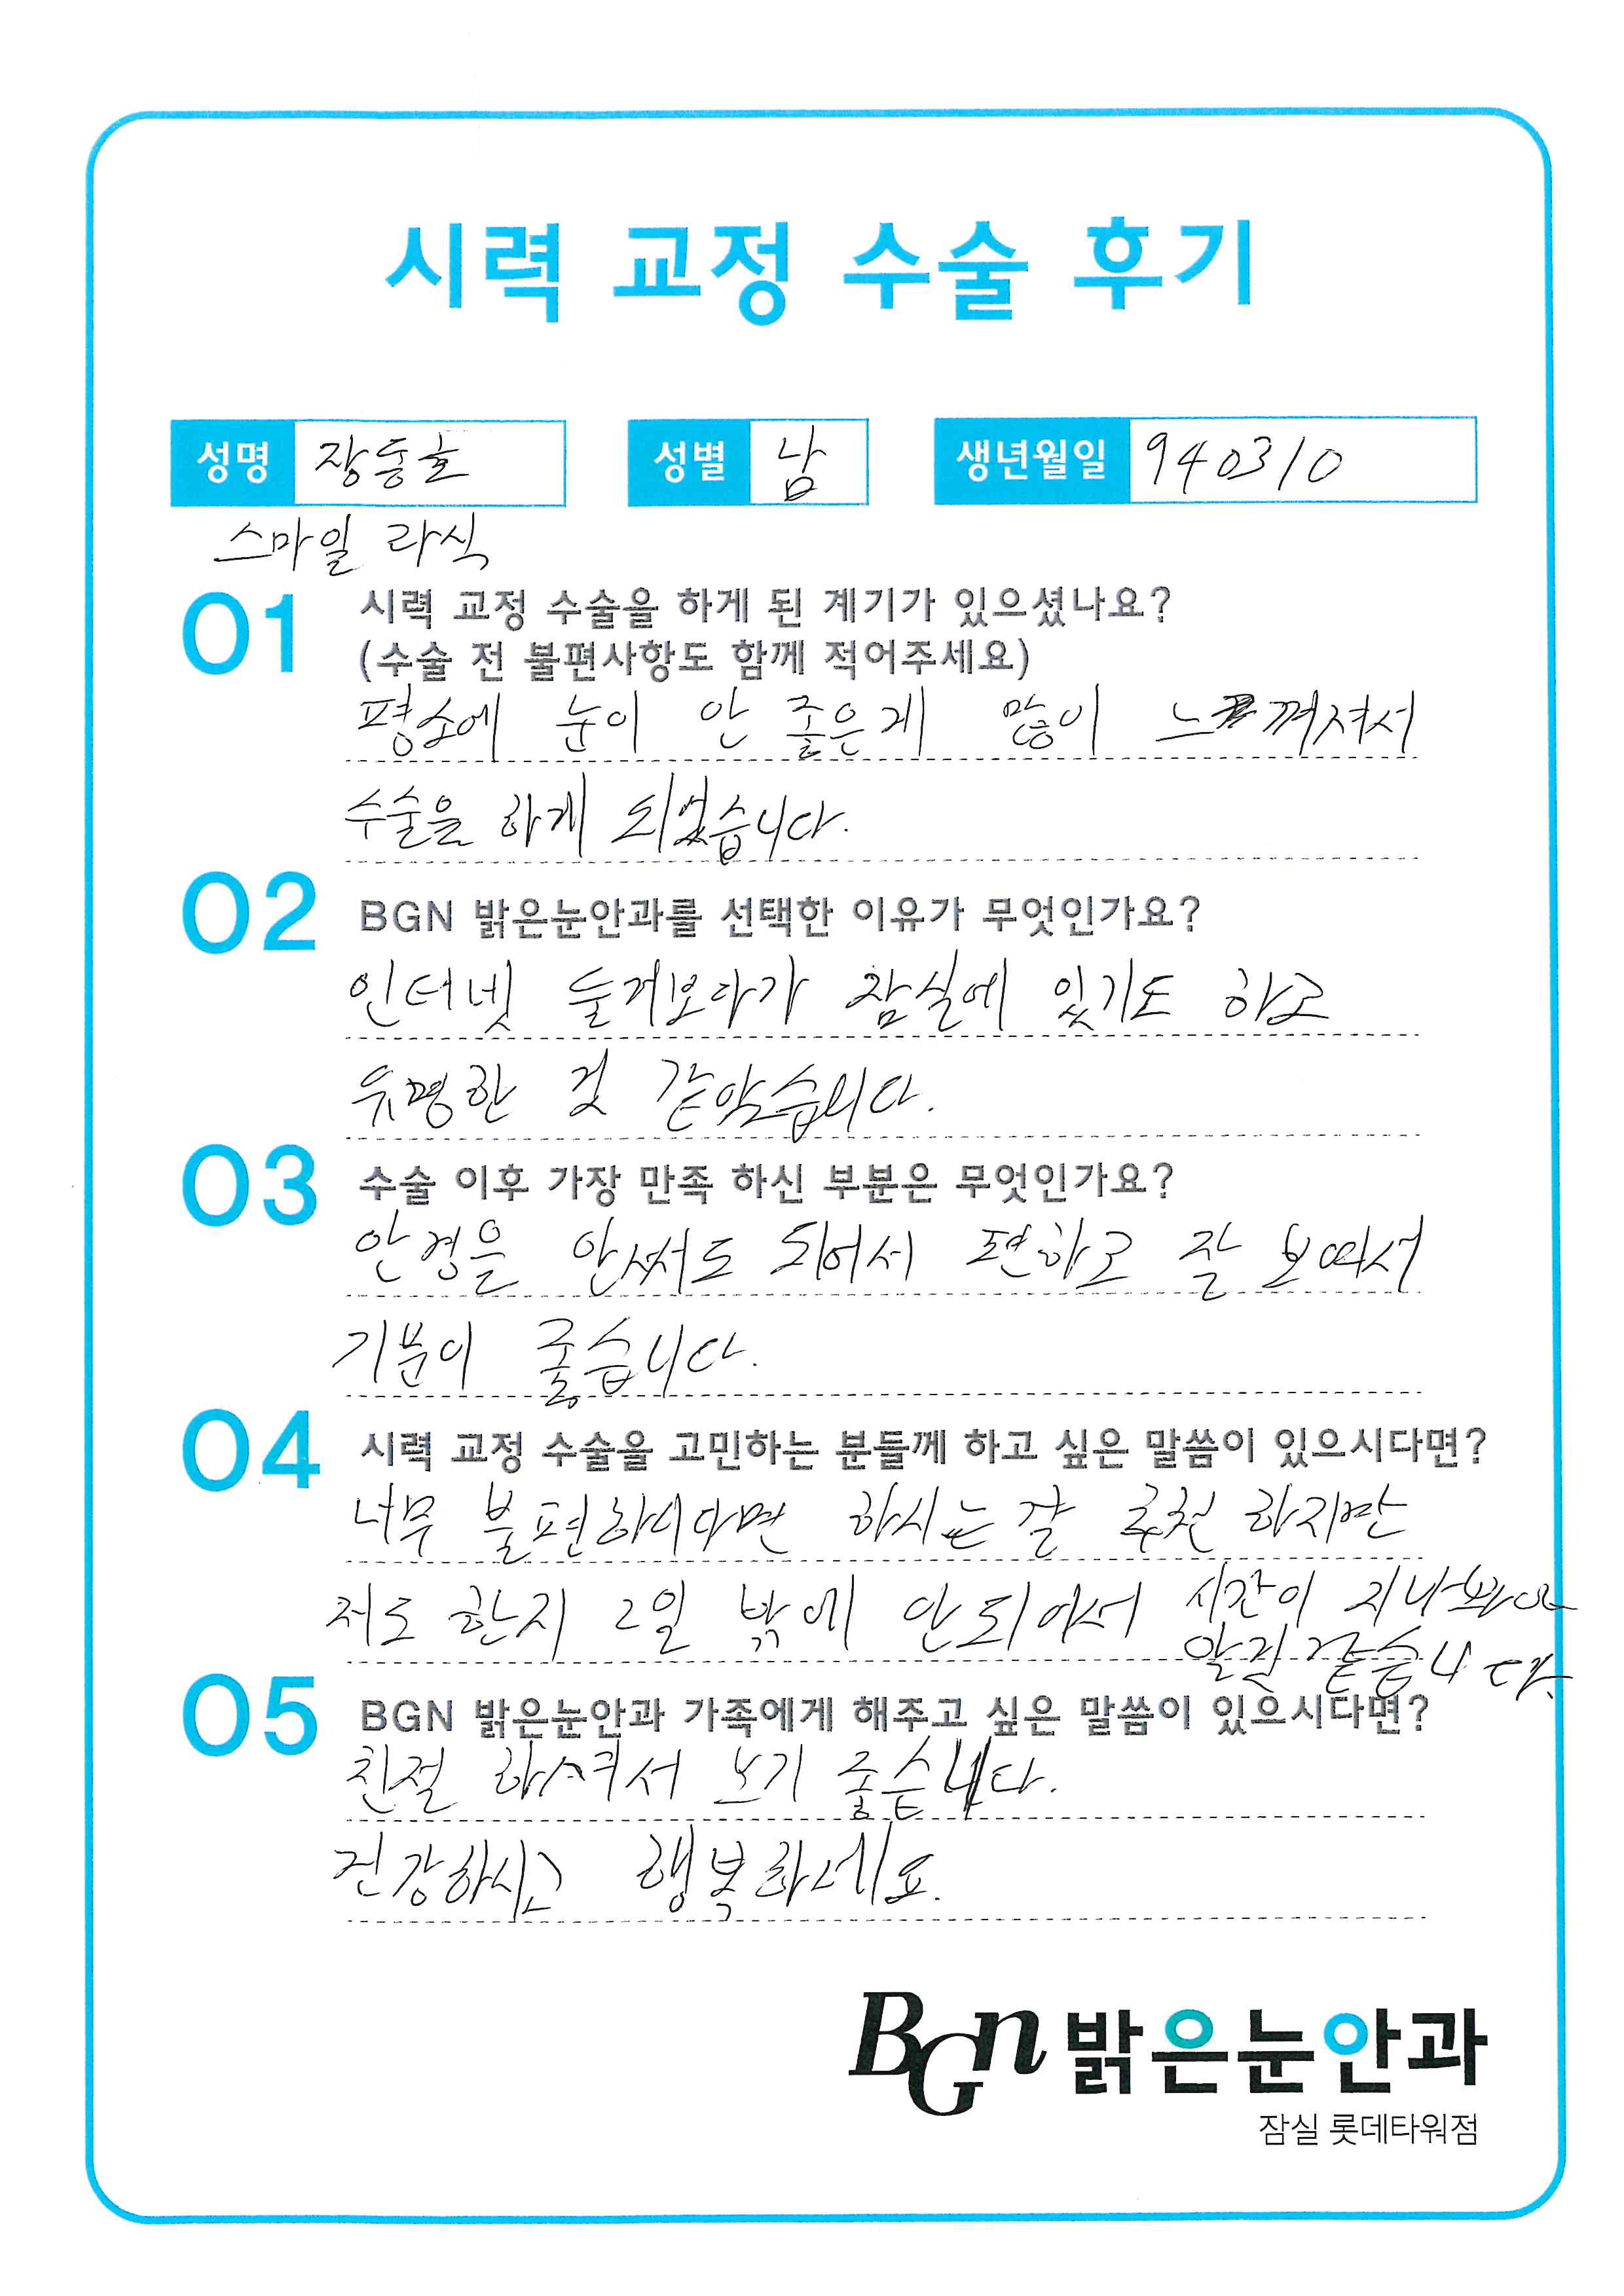 시력 교정 수술 후기
성명 장동호 성별 남 생년월일 940310
스마일 라식
01 시력 교정 수술을 하게 된 계기가 있으셨나요?
(수술 전 불편사항도 함께 적어주세요)
평소에 눈이 안 좋은게 많이 느껴져서
수술을 하게 되었습니다.
02 BGN 밝은눈안과를 선택한 이유가 무엇인가요?
인터넷 둘거보다가 잠실에 있기도 하고
유명한 것 같았습니다.
03 수술 이후 가장 만족 하신 부분은 무엇인가요?
안경을 안써도 되어서 편하고 잘 보여서
기분이 좋습니다.
04 시력 교정 수술을 고민하는 분들께 하고 싶은 말씀이 있으시다면?
너무 불편하시다면 하시는걸 추천 하지만
저도 한지 2일 밖에 안되어서 시간이 지나봐야
알것 같습니다.
05 BGN 밝은눈안과 가족에게 해주고 싶은 말씀이 있으시다면?
친절 하셔서 보기 좋습니다.
건강하시고 행복하세요.
BGN 밝은눈안과
잠실 롯데타워점